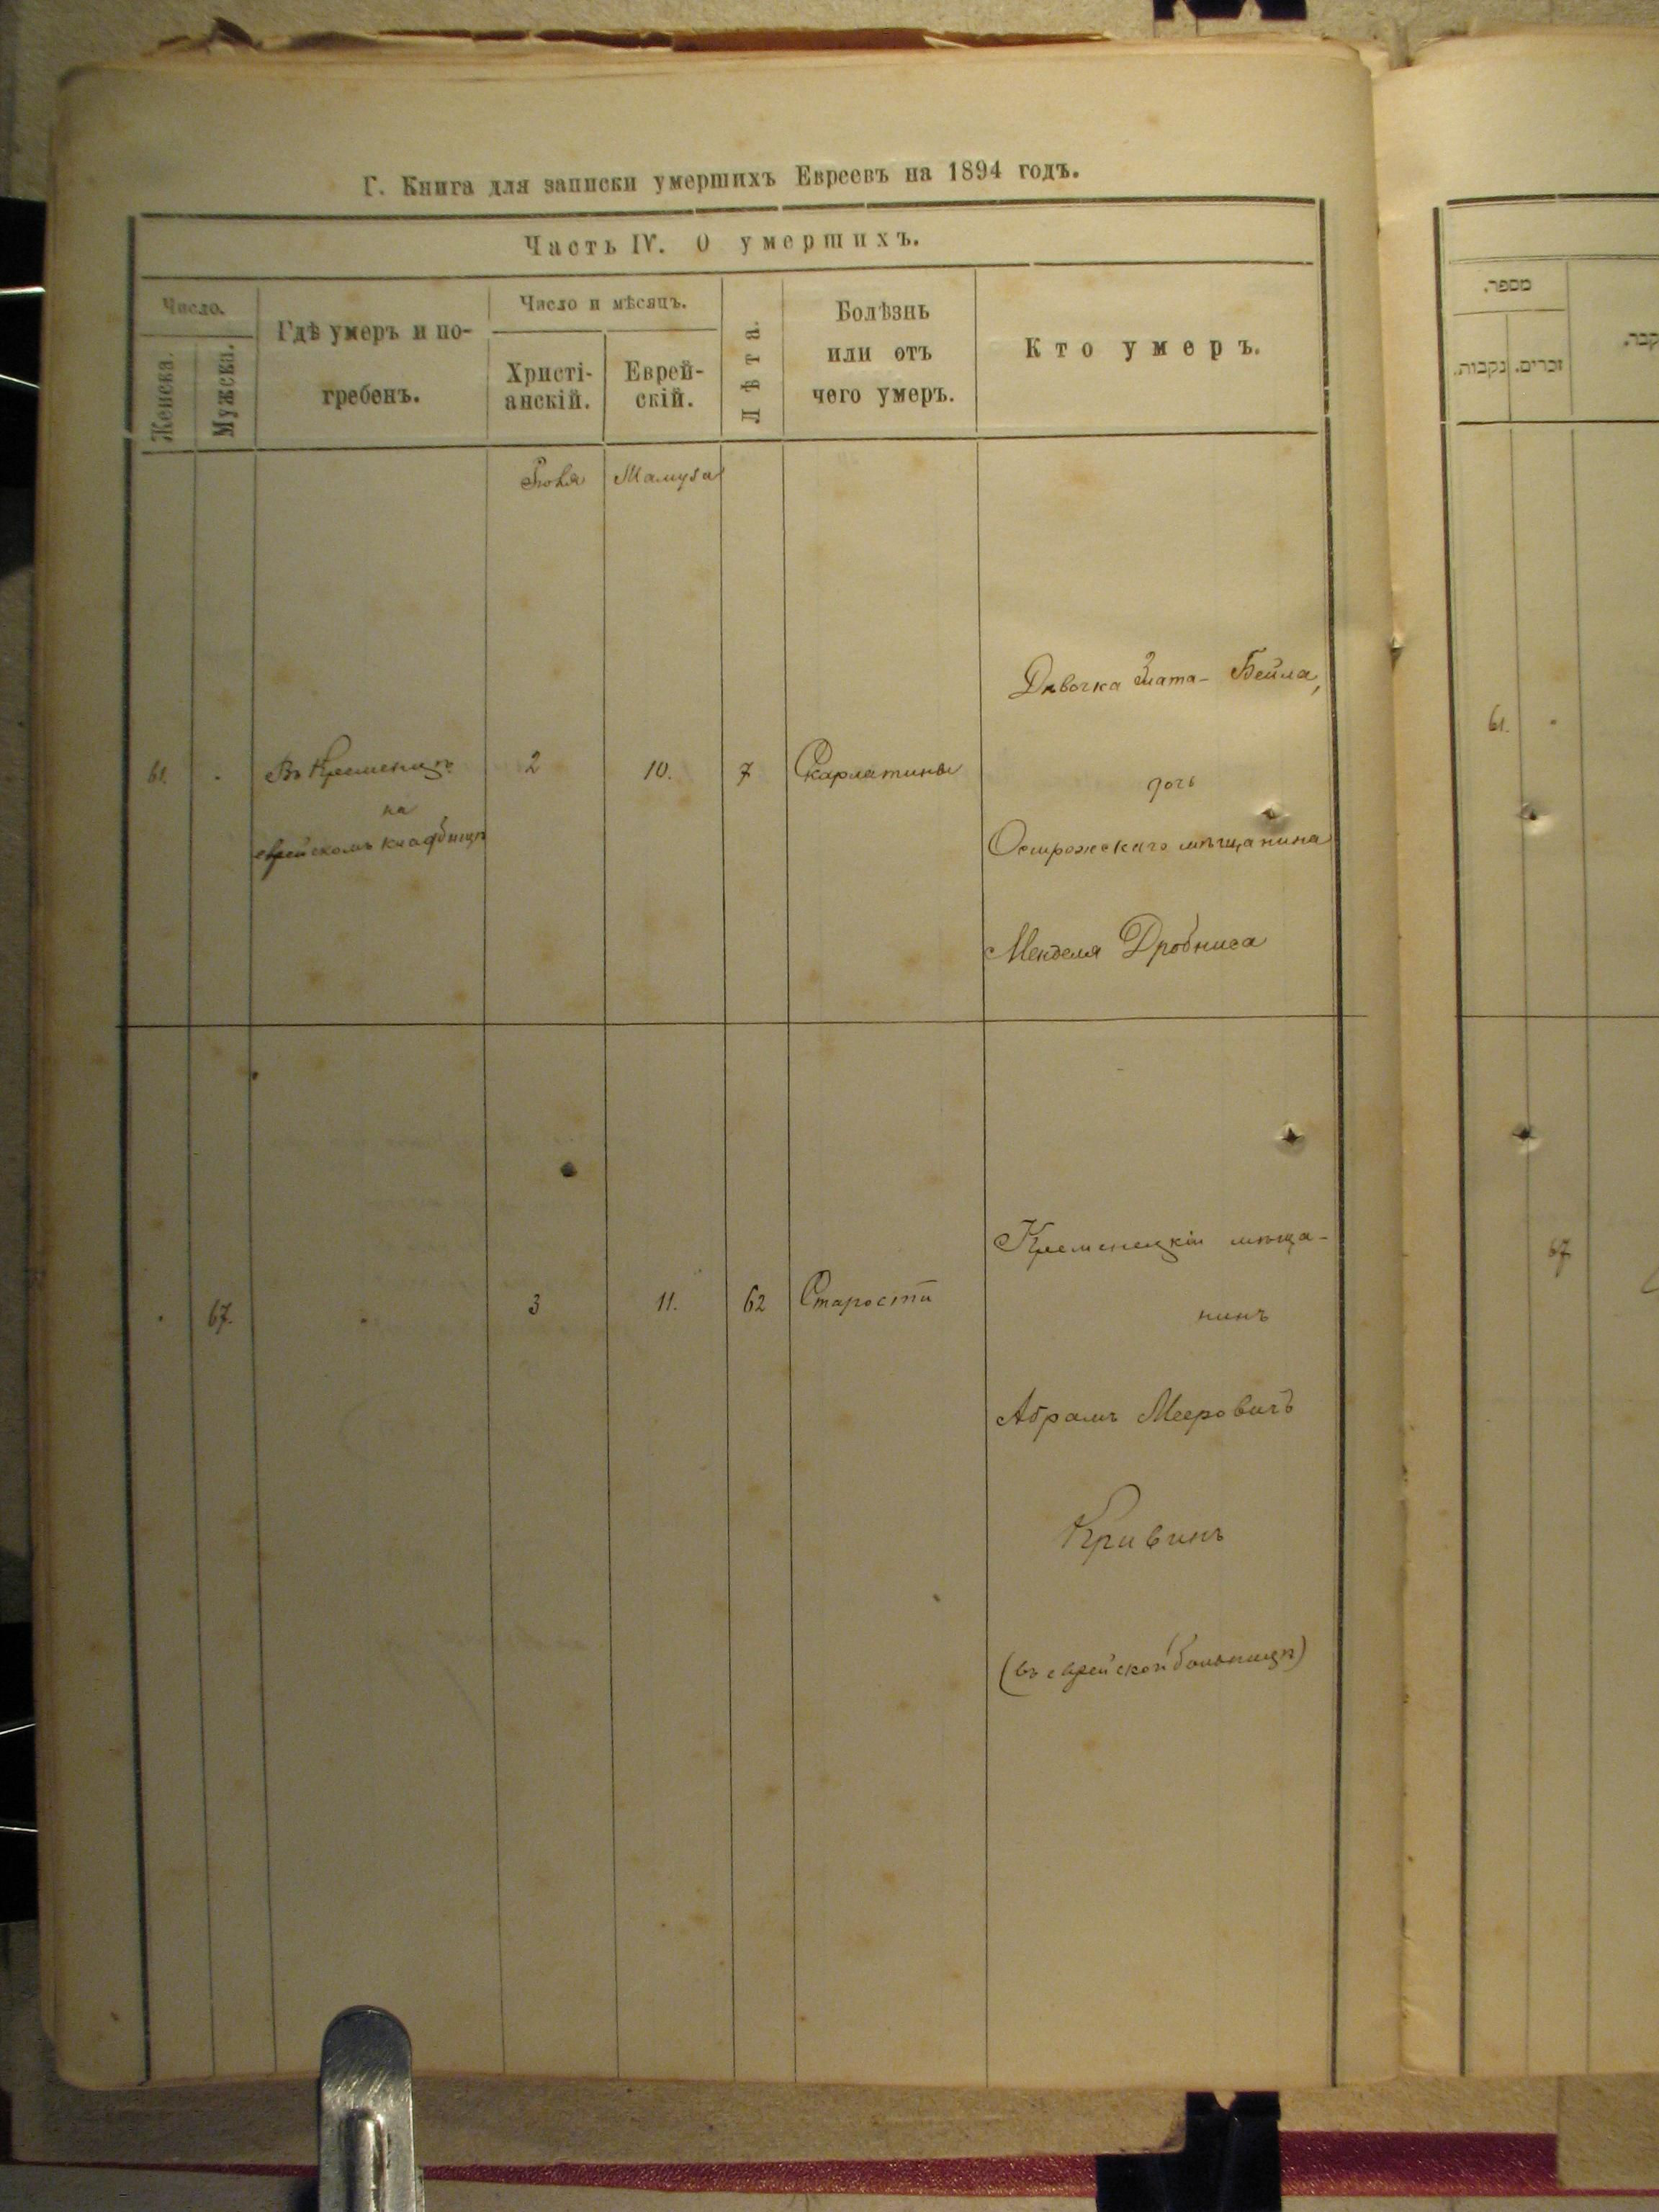 Г. Книга для записки умершихъ Евреевъ на 1894 годъ.
Часть IV. О умершихъ.
Число.
Женска.
Мужска.
Гдѣ умеръ и по-
гребенъ.
Число и мѣсяцъ.
Христі-
анскій.
Еврей-
скій.
Лѣта.
Болѣзнь
или отъ
чего умеръ.
Кто умеръ.
Іюля
Тамуза
61.
Въ Кременцѣ
на
еврейскомъ кладбищѣ
2
10.
7
Скарлатины
Дѣвочка Злата-Бейла,
дочь
Острожскаго мѣщанина
Менделя Дробниса
67.
3
11.
62
Старости
Кременецкій мѣща-
нинъ
Абрамъ Мееровичъ
Кривинъ
(въ еврейской больницѣ)
מספר.
נקבות.
זכרים.
61.
67